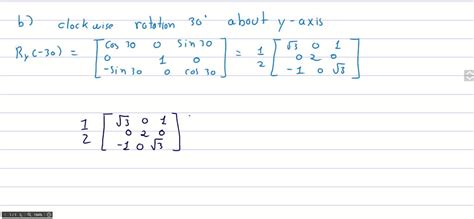 b) clockwise rotation 30° about y-axis
Ry(-30) = [cos 30 0 sin 30
0 1 0
-sin 30 0 cos 30] = 1/2 [√3 0 1
0 2 0
-1 0 √3]
1/2 [√3 0 1
0 2 0
-1 0 √3]